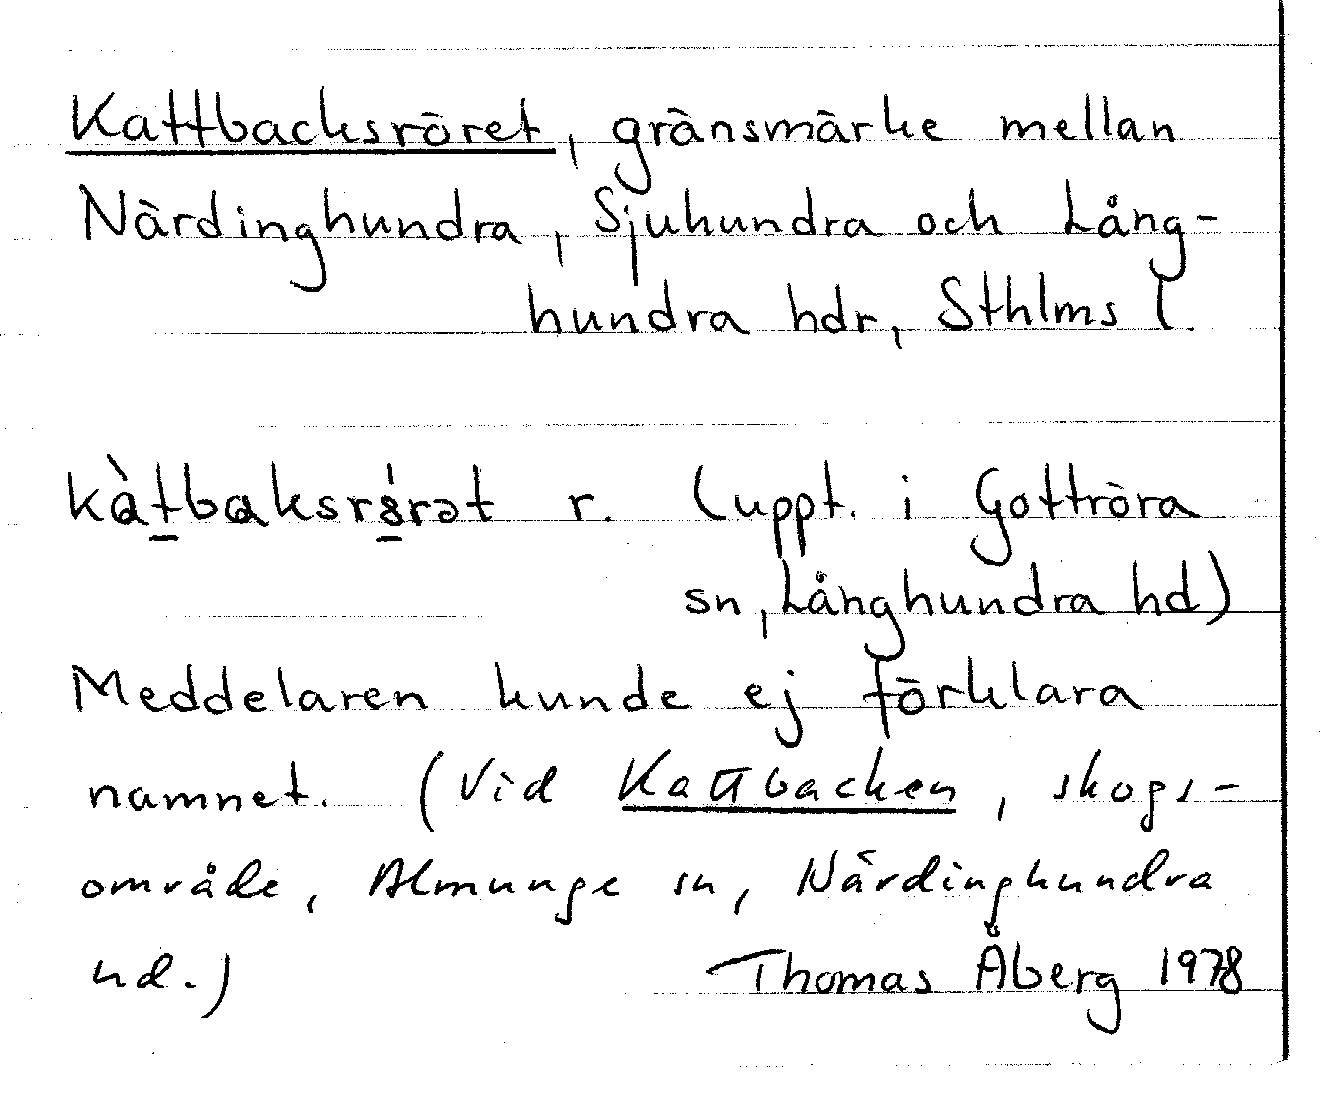 Kattbacksröret, gränsmärke mellan
Närdinghundra, Sjuhundra och Lång-
hundra hdr, Sthlms l.
kàt̲baksrs̲̍rət r. (uppt. i Gottröra
sn, Långhundra hd)
Meddelaren kunde ej förklara
namnet. (Vid Kattbacken, skogs-
område, Almunge sn, Närdinghundra
hd.) Thomas Åberg 1978